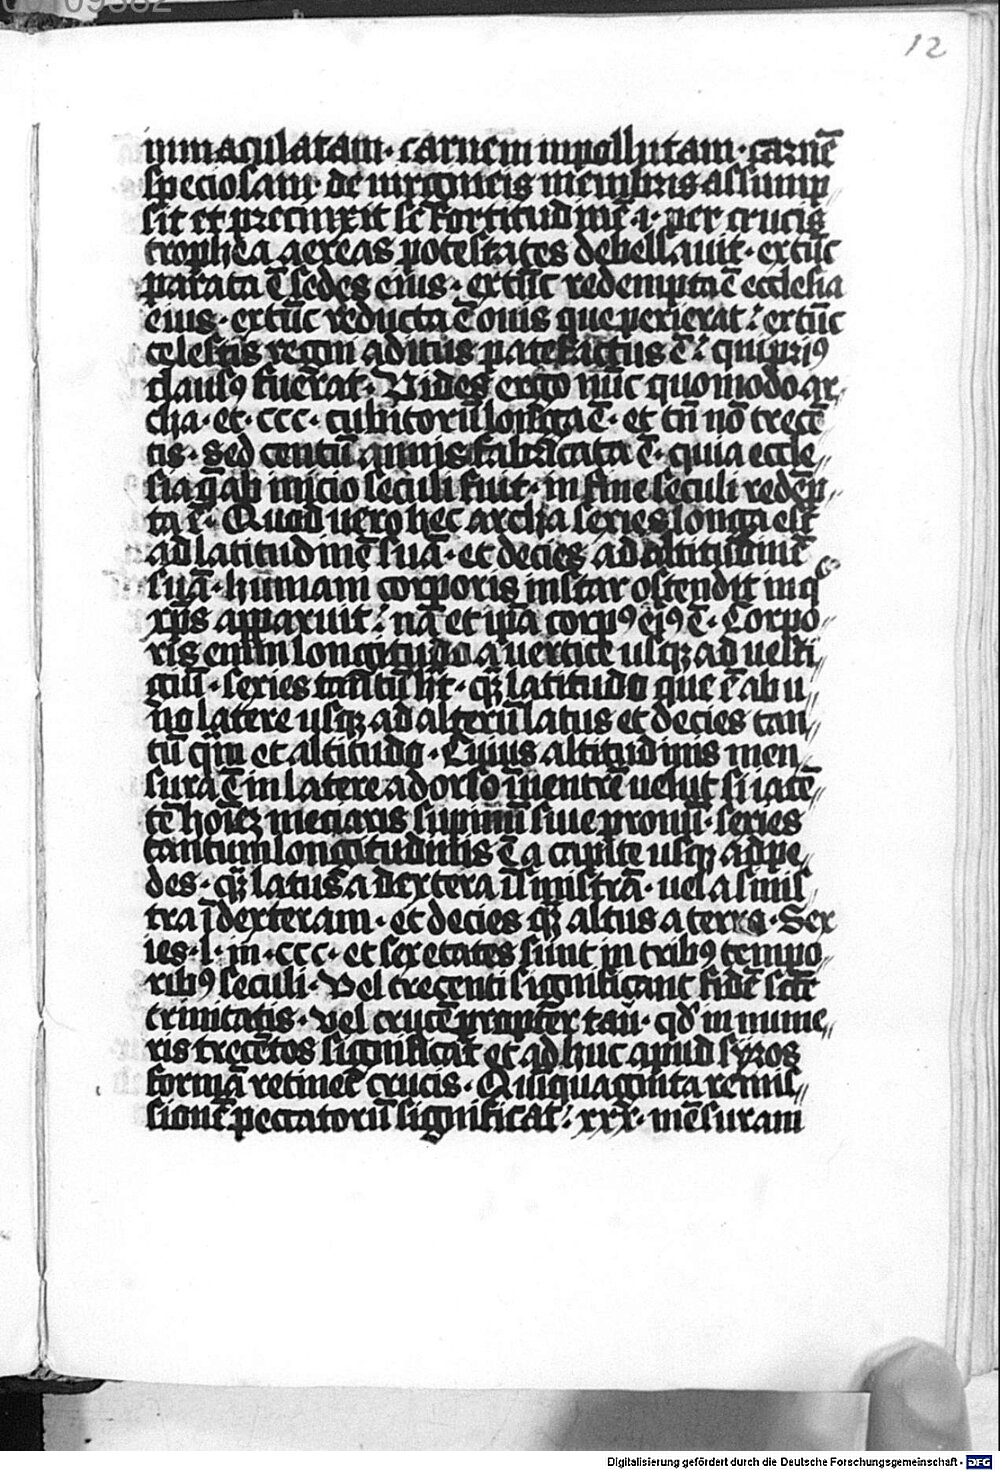 12
inmaculatam · carnem inpollutam · carnē
speciosam · de uirgineis membris assump
sit et precinxit se fortitudinē · i · per crucis
trophea aereas potestates debellauit · extūc
parata ē sedes eius · extūc redempta ē ecclesia
eius · extūc reducta ē ouis que perierat : extūc
celestis regni aditus patefactus ē : qui priꝰ
clausꝰ fuerat · Vides ergo nūc quomodo ar
cha · et · ccc · cubitorū longa ē · et tn̄ nō trecē
tis · Sed centū annis fabricata ē · quia eccle
sia q̄ ab inicio seculi fuit · in fine seculi redēp
ta ē · Quod uero hec archa sexies longa est
ad latitudinē suā · et decies ad altitudinē
suā · humani corporis instar ostendit in q°
xp̄s apparuit : nā et ip̄a corpꝰ eiꝰ ē · Corpo
ris enim longitudo a uertice usqꝫ ad uesti
giū · sexies tantū ht̄ · qꝫ̄ latitudo que ē ab u
no latere usqꝫ ad alterū latus et decies tan
tū qm̄ et altitudo · Cuius altitudinis men
sura ē in latere a dorso ī uentrē uelut si iacē
tē hoīeꝫ meciaris supinū siue pronū · sexies
tantum longitudinis ē a capite usqꝫ ad pe
des · qꝫ̄ latus a dextera ī sinistrā · uel a sinis
tra ī dexteram · et decies qꝫ̄ altus a terra · Sex
ies · l · in · ccc · et sex etates sunt in tribꝰ tempo
ribꝰ seculi · Vel trecenti significant fidē scē
trinitatis · vel crucē propter tau · qd' in nume
ris trecētos significat et adhuc apud syros
formā retinet crucis · Quinquaginta remis
sionē peccatorū significat : xxx · mēsuram
Digitalisierung gefördert durch die Deutsche Forschungsgemeinschaft · DFG